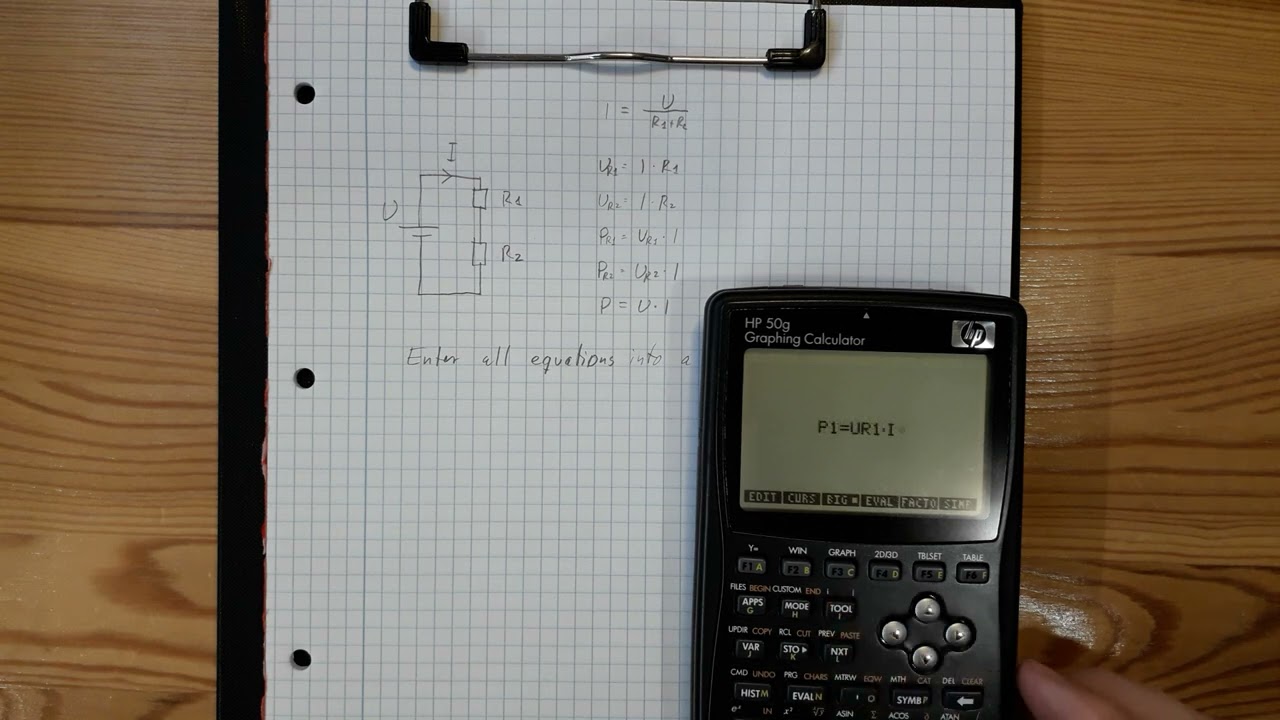 I = U / R1+R2
I
UR1 = I · R1
U
R1
UR2 = I · R2
R2
PR1 = UR1 · I
PR2 = UR2 · I
P = U · I
Enter all equations into a
HP 50g
Graphing Calculator
hp
P1=UR1·I
EDIT CURS BIG■ EVAL FACTO SIMP
Y= WIN GRAPH 2D/3D TBLSET TABLE
F1 A F2 B F3 C F4 D F5 E F6 F
FILES BEGIN CUSTOM END i I
APPS MODE TOOL
G H I
UPDIR COPY RCL CUT PREV PASTE
VAR STO▶ NXT
J K L
CMD UNDO PRG CHARS MTRW EQW MTH CAT DEL CLEAR
HIST M EVAL N ' O SYMB P
eˣ LN x² ASIN Σ ACOS ∂ ATAN